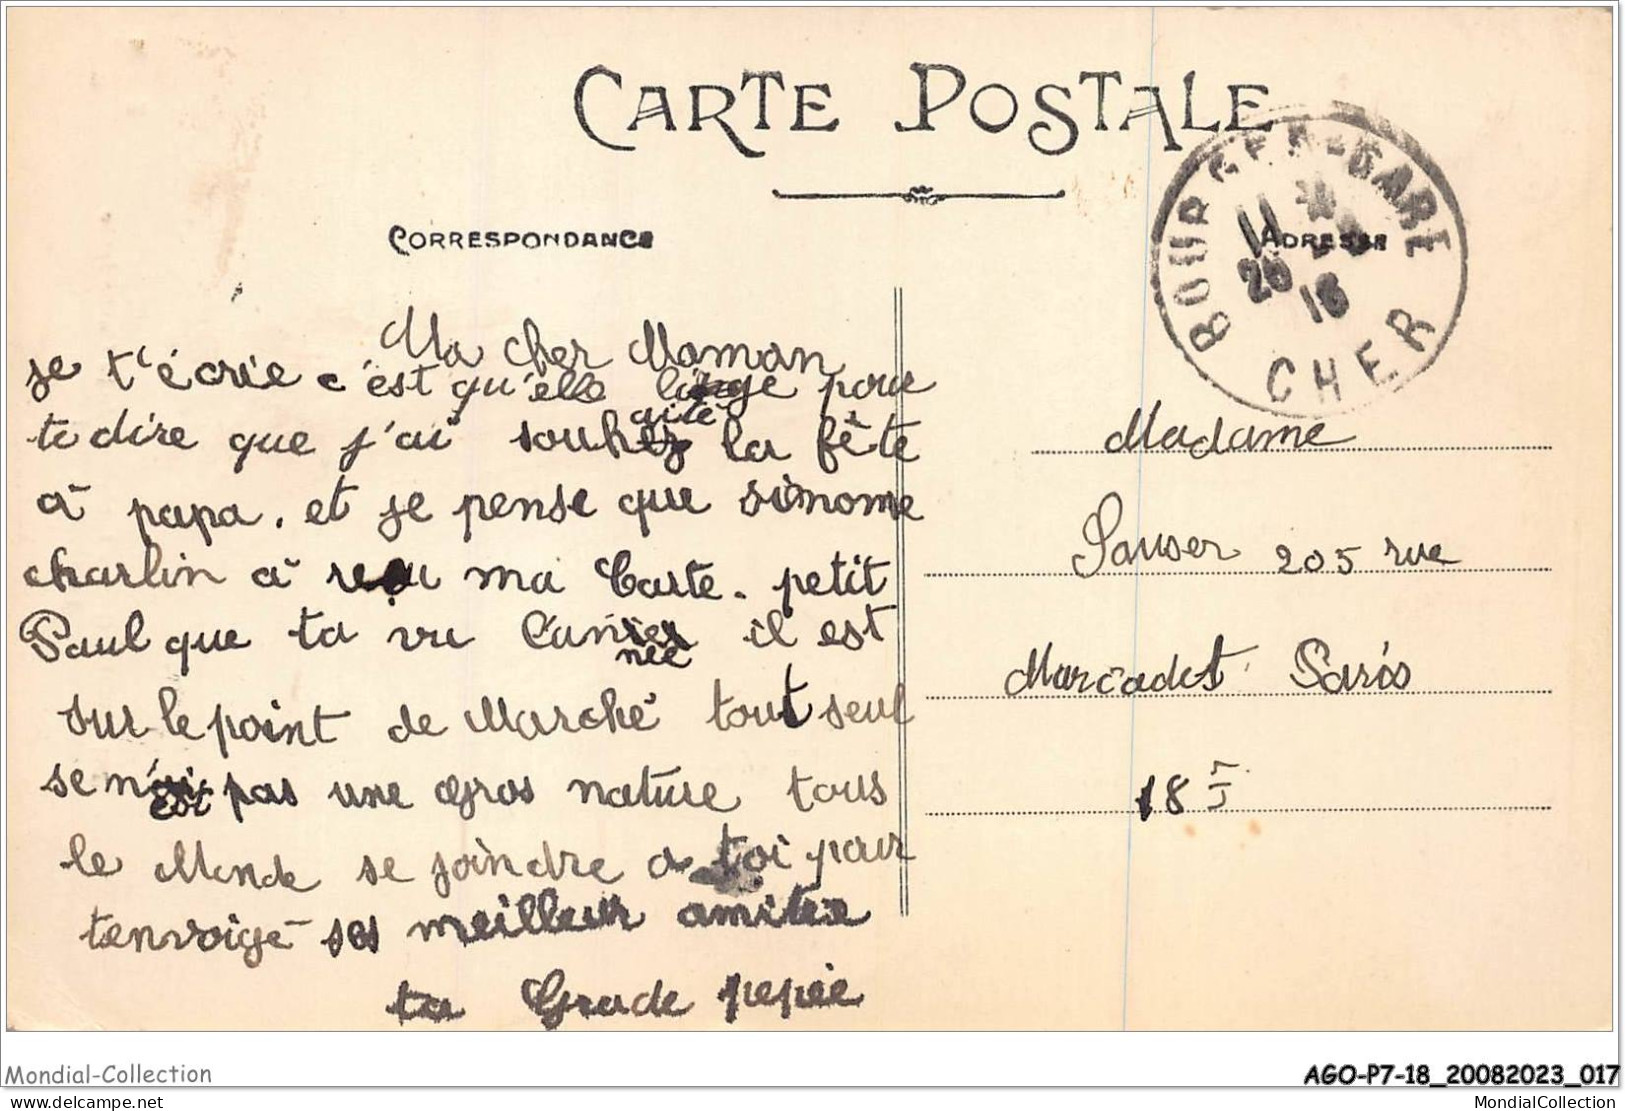 CARTE POSTALE
CORRESPONDANCE
ADRESSE
BOURGES-GARE
11
25 18
CHER
Ma cher Maman
je t'écrie c'est qu'elle linge pour
te dire que j'ai souhaité la fête
à papa. et je pense que simone
charlin à reçu ma Carte. petit
Paul que ta vu l'année il est
sur le point de Marché tout seul
se n'est pas une gros nature tous
le Monde se joindre a toi pour
tenvoige ses meilleur amitée
ta Grade pepée
Madame
Sauser 205 rue
Marcadet Paris
18
Mondial-Collection
AGO-P7-18_20082023_017
delcampe.net
MondialCollection